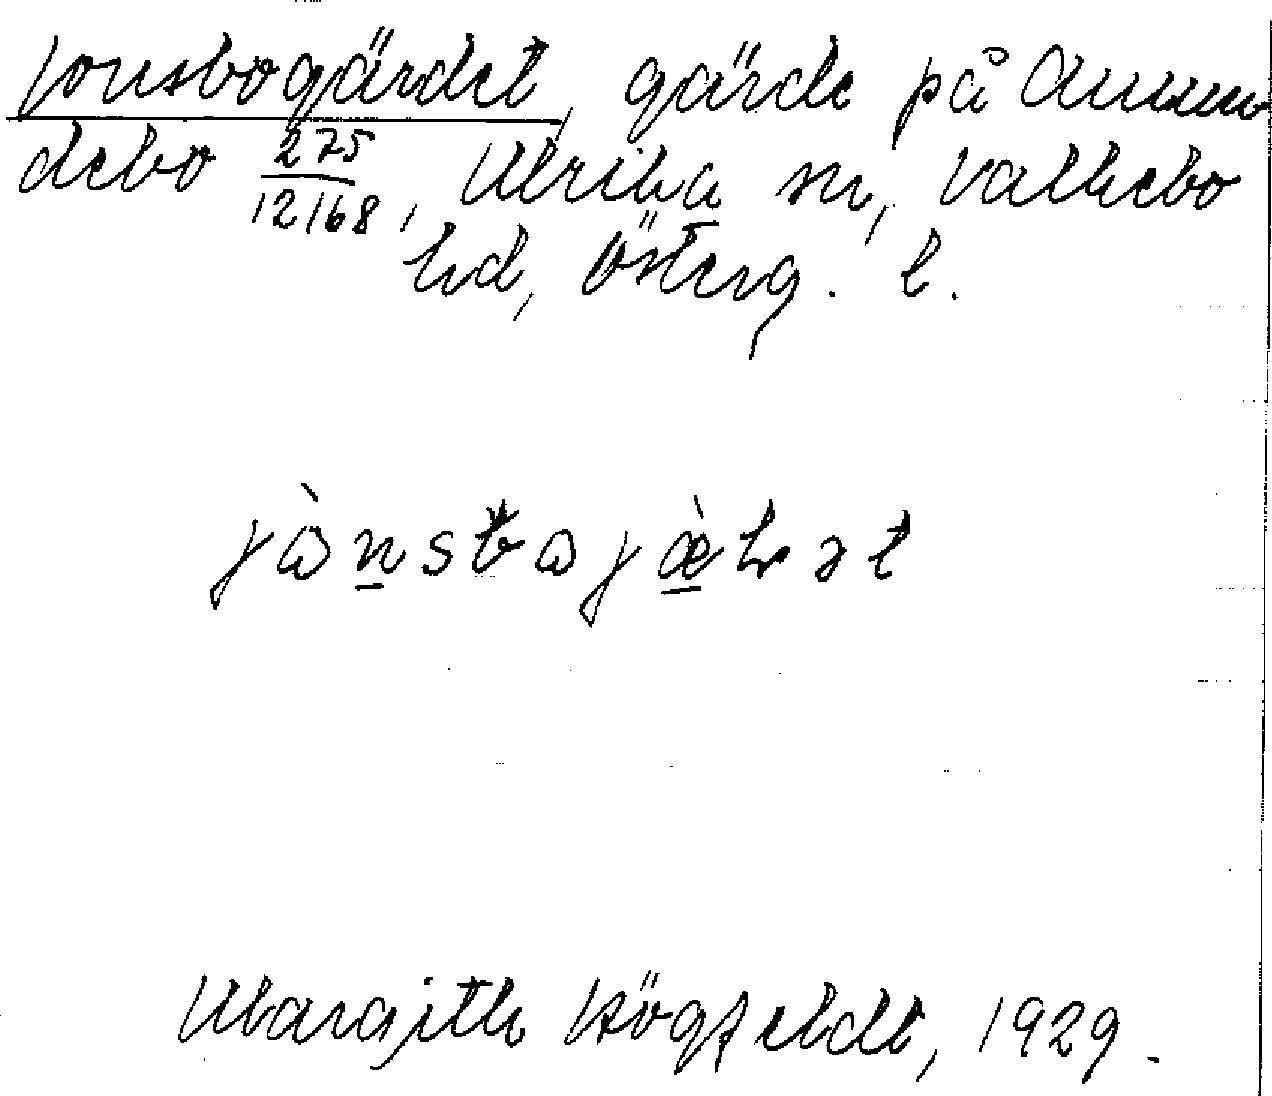 Jonsbogärdet, gärde på Ammun
debo 275/12168, Ulrika sn, Vallebo
hd, Österg. l.
Margith Högfeldt, 1929.